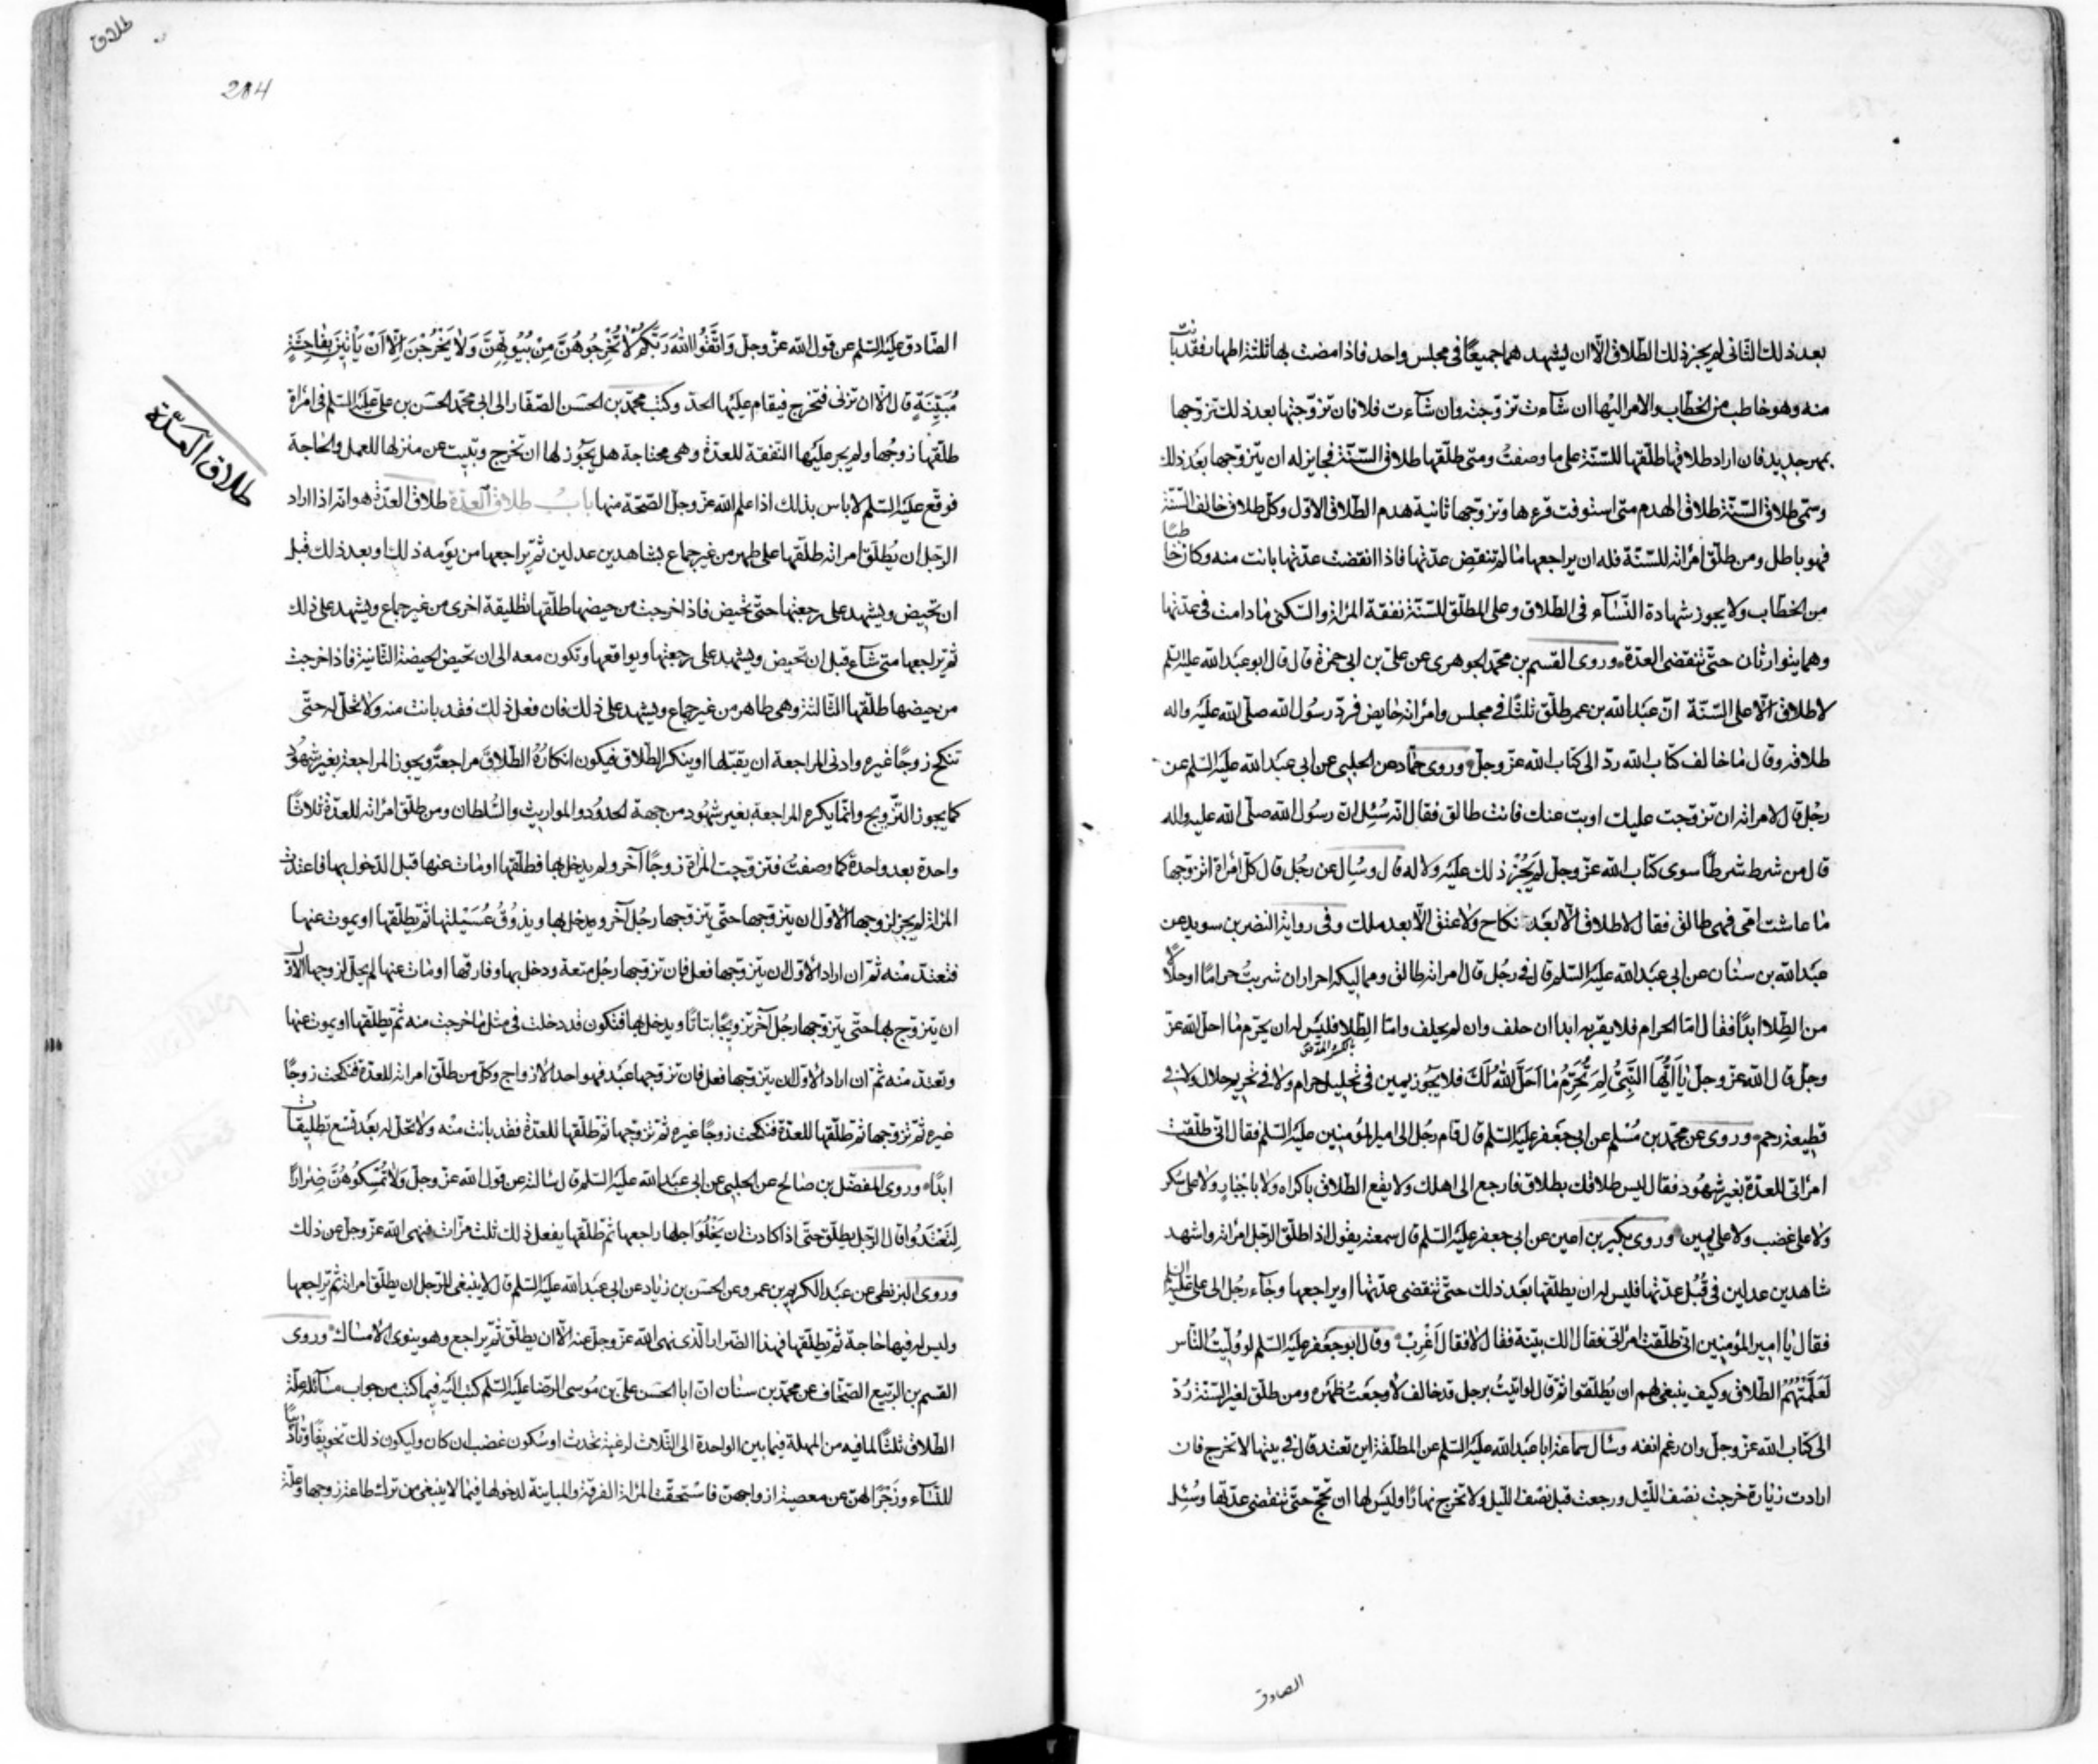 بعد ذلك الثانى لم يجز ذلك الطّلاق الّا ان يشهد هما جميعًا فى مجلس واحد فاذا مضت بها ثلثة اطهار فقد بانت
منه وهو خاطب من الخطّاب والامر اليها ان شآءت تزوّجته وان شآءت فلا فان تزوّجها بعد ذلك تزوّجها
بمهر جديد فان اراد طلاقها طلّقها للسّنّة على ما وصفتُ ومتى طلّقها طلاق السّنّة فجايز له ان يتزوّجها بعد ذلك
وسمّى طلاق السّنّة طلاق الهدم متى استوفت قرءها وتزوّجها ثانية هدم الطّلاق الاوّل وكلّ طلاق خالف السّنّة
فهو باطل ومن طلّق امرأته للسّنّة فله ان يراجعها ما لم تنقض عدّتها فاذا انقضت عدّتها بانت منه وكان خاطبًا
من الخطّاب ولا يجوز شهادة النّسآء فى الطلاق وعلى المطلّق للسّنّة نفقة المرأة والسّكنى ما دامت فى عدّتها
وهما يتوارثان حتّى تنقضى العدّة وروى القسم بن محمّد الجوهرى عن علىّ بن ابى حمزة قال قال ابو عبد الله عليه السّلم
لا طلاق الّا على السّنّة انّ عبد الله بن عمر طلّق ثلثًا فى مجلس وامرأته حايض فردّ رسول الله صلّى الله عليه واله
طلاقه وقال ما خالف كتاب الله ردّ الى كتاب الله عزّ وجلّ وروى حمّاد عن الحلبى عن ابى عبد الله عليه السّلم عن
رجل قال لامرأته ان تزوّجت عليك او بت عنك فانت طالق فقال انّه سُئِل انّ رسول الله صلّى الله عليه واله
قال من شرط شرطًا سوى كتاب الله عزّ وجلّ لم يَجُزْ ذلك عليه ولا له قال وسُئِل عن رجُل قال كلّ امرأة اتزوّجها
ما عاشت امّى فهى طالق فقال لا طلاق الّا بعد نكاح ولا عتق الّا بعد ملك وفى رواية النضر بن سويد عن
عبد الله بن سنان عن ابى عبد الله عليه السّلم قال فى رجُل قال امرأته طالق ومماليكه احرار ان شربتُ حرامًا او حلالًا
من الطِلا ابدًا فقال امّا الحرام فلا يقربه ابدا ان حلف وان لم يحلف وامّا الطِلا فليس له ان يحرّم ما احلّ الله عزّ
وجلّ قال الله عزّ وجلّ يٰا اَيُّهَا النَّبِىُّ لِمَ تُحَرِّمُ مٰا اَحَلَّ اللهُ لَكَ فلا يجوز يمين فى تحليل حرام ولا فى تحريم حلال ولا فى
قطيعة رحم وروى عن محمّد بن مُسْلم عن ابى جعفر عليه السّلم قال قام رجُل الى امير المؤمنين عليه السّلم فقال انّى طلّقت
امرأتى للعدّة بغير شهُود فقال ليس طلاقك بطلاق فارجع الى اهلك ولا يقع الطلاق باكراه ولا باجبار ولا على سُكر
ولا على غضب ولا على يمين وروى بكير بن اعين عن ابى جعفر عليه السّلم قال سمعته يقول اذا طلّق الرّجل امرأته واشهد
شاهدين عدلين فى قُبُل عدّتها فليس له ان يطلّقها بعد ذلك حتّى تنقضى عدّتها او يراجعها وجآء رجُل الى علىّ عليه السّلم
فقال يا امير المؤمنين انّى طلّقت امرأتى فقال الك بيّنة فقال لا فقال اُغْرِبْ وقال ابو جعفر عليه السّلم لو وُلّيتُ النّاس
لَعَلَّمْتُهُمُ الطّلاق وكيف ينبغى لهم ان يُطلّقوا ثم قال لو اتيتُ برجل قد خالف لاوجعتُ ظهره ومن طلّق لغير السّنّة رُدّ
الى كتاب الله عزّ وجلّ وان رغم انفه وسئال سماعة ابا عبد الله عليه السّلم عن المطلّقة اين تعتدّ قال فى بيتها لا تخرج فان
ارادت زيارة خرجت نصف اللّيل ورجعت قبل نصف اللّيل ولا تخرج نهارًا وليس لها ان تحجّ حتّى تنقضى عدّتها وسُئِل
الصادق
طلاق
204
الصّادق عليه السّلم عن قول الله عزّ وجلّ وَاتَّقُوا اللهَ رَبَّكُمْ لٰا تُخْرِجُوهُنَّ مِنْ بُيُوتِهِنَّ وَلٰا يَخْرُجْنَ اِلّٰا اَنْ يَأْتِينَ بِفٰاحِشَةٍ
مُبَيِّنَةٍ قال الّا ان تزنى فتخرج فيقام عليها الحدّ وكتب محمّد بن الحسن الصّفّار الى ابى محمّد الحسن بن علىّ عليه السّلم فى امرأة
طلّقها زوجُها ولم يجر عليها النّفقة للعدّة وهى محتاجة هل يجوز لها ان تخرج وتبيت عن منزلها للعمل والحاجة
فوقّع عليه السّلم لا باس بذلك اذا علم الله عزّ وجلّ الصّحّة منها باب طلاق العدّة طلاق العدّة هو انّه اذا اراد
طلاق العدّة
الرّجل ان يُطلّق امرأته طلّقها على طهر من غير جماع بشاهدين عدلين ثمّ يراجعها من يومه ذلك او بعد ذلك قبل
ان تحيض ويشهد على رجعتها حتّى تحيض فاذا خرجت من حيضها طلّقها تطليقة اخرى من غير جماع ويشهد على ذلك
ثمّ يراجعها متى شآء قبل ان تحيض ويشهد على رجعتها ويواقعها وتكون معه الى ان تحيض الحيضة الثّانية فاذا خرجت
من حيضها طلّقها الثّالثة وهى طاهر من غير جماع ويشهد على ذلك فان فعل ذلك فقد بانت منه ولا تحلّ له حتّى
تنكح زوجًا غيره وادنى المراجعة ان يقبّلها او ينكر الطّلاق فيكون انكارُهُ الطّلاقَ مراجعةً ويجوز المراجعة بغير شهُود
كما يجوز التّزويج وانّما يكره المراجعة بغير شهُود من جهة الحدُود والمواريث والسُّلطان ومن طلّق امرأته للعدّة ثلاثًا
واحدة بعد واحدة كما وصفتُ فتزوّجت المرأة زوجًا آخر ولم يدخل بها فطلّقها او مات عنها قبل الدّخول بها فاعتدّت
المرأة لم يجز لزوجها الاوّل ان يتزوّجها حتّى يتزوّجها رجُل آخر ويدخل بها ويذُوقُ عُسَيْلتها ثمّ يطلّقها او يموت عنها
فتعتدّ منْه ثمّ ان اراد الاوّل ان يتزوّجها فعل فان تزوّجها رجُل متعة ودخل بها وفارقها او مات عنها لم يحلّ لزوجها الاوّل
ان يتزوّج بها حتّى يتزوّجها رجُل آخر تزويجًا بتاتًا ويدخل بها فتكون قد دخلت فى مثل ما خرجت منه ثمّ يطلّقها او يموت عنها
وتعتدّ منْه ثمّ ان اراد الاوّل ان يتزوّجها فعل فان تزوّجها عبد فهو احد الازواج وكلّ من طلّق امرأته للعدّة فنكحت زوجًا
غيره ثمّ تزوّجها ثمّ طلّقها للعدّة فنكحت زوجًا غيره ثمّ تزوّجها ثمّ طلّقها للعدّة فقد بانت منْه ولا تحلّ له بعد تسْع تطليقات
ابدًا وروى المفضّل بن صالح عن الحلبى عن ابى عبد الله عليه السّلم قال سألته عن قول الله عزّ وجلّ وَلٰا تُمْسِكُوهُنَّ ضِرٰارًا
لِتَعْتَدُوا قال الرّجل يطلّق حتّى اذا كادت ان يَخْلُوَ اجلها راجعها ثمّ طلّقها يفعل ذلك ثلث مرّات فنهى الله عزّ وجلّ عن ذلك
وروى البزنطى عن عبد الكريم بن عمرو عن الحسن بن زياد عن ابى عبد الله عليه السّلم قال لا ينبغى للرّجل ان يطلّق امرأته ثمّ يراجعها
وليس له فيها حاجة ثمّ يطلّقها فهذا الضّرار الّذى نهى الله عزّ وجلّ عنه الّا ان يطلّق ثمّ يراجع وهو ينوى الامساك وروى
القسم بن الرّبيع الصّحّاف عن محمّد بن سنان انّ ابا الحسن علىّ بن مُوسى الرّضا عليه السّلم كتب اليه فيما كتب من جواب مسآئله علّة
الطّلاق ثلثًا لما فيه من المهلة فيما بين الواحدة الى الثّلاث لرغبة تحدث او سُكون غضب ان كان وليكون ذلك تخويفًا وتاديبًا
للنّسآء وزَجْرًا لهنّ عن معصية ازواجهنّ فاسْتحقّت المرأة الفرقة والمباينة لدخولها فيما لا ينبغى من ترك طاعة زوجها وعلّة